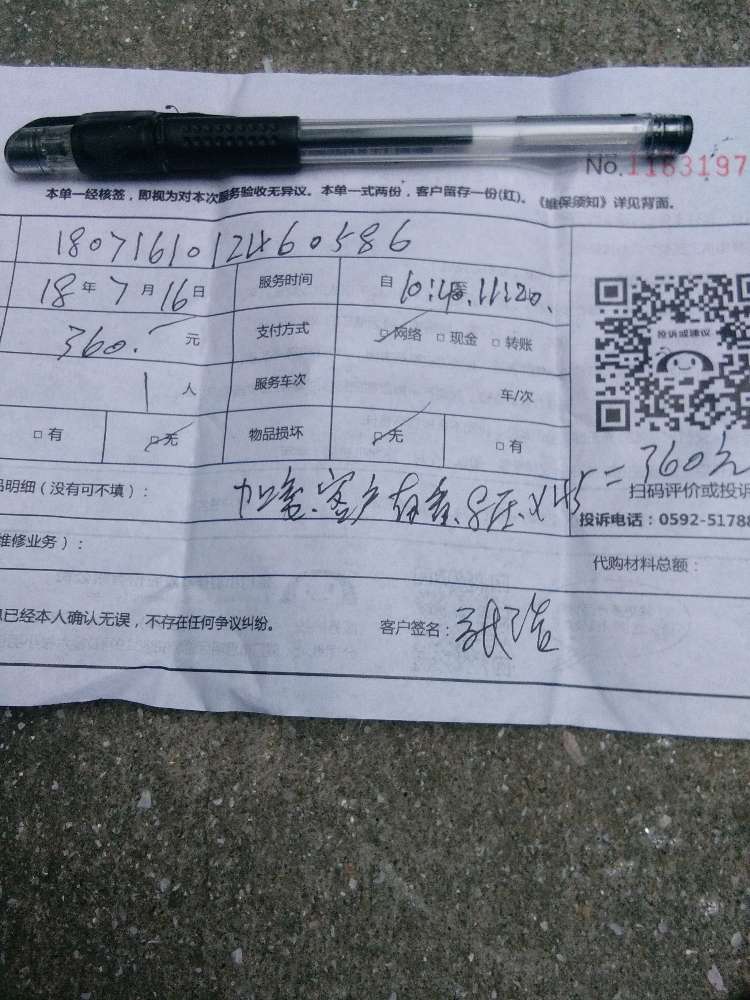 No.1163197
本单一经核签，即视为对本次服务验收无异议。本单一式两份，客户留存一份(红)。《维保须知》详见背面。
18071610121460586
18年7月16日 服务时间 自10:40 至 11:20.
360.- 元 支付方式 □网络 □现金 □转账
投诉或建议
1人 服务车次 车/次
□有 □无 物品损坏 □无 □有
品明细（没有可不填）： 加氟、客户有氟、8压×45=360元
扫码评价或投诉
维修业务）：
投诉电话：0592-51788
代购材料总额：
息已经本人确认无误，不存在任何争议纠纷。 客户签名：张浩